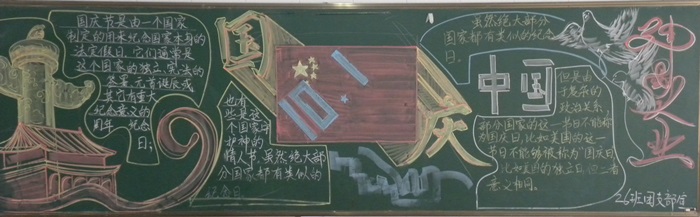 国庆节是由一个国家
制定的用来纪念国家本身的
法定假日。它们通常是
这个国家的独立、宪法的
签署、元首诞辰或
其它有重大
纪念意义的
周年 纪念
日;
国庆
10.1
也有
些是这
个国家守
护神的
情人书。虽然绝大部
分国家都有类似的
纪念日
虽然绝大部分
国家都有类似的纪念
日。
中国
但是由
于复杂的
政治关系,
部分国家的这一书日不能称
为国庆日,比如美国的这一
书日不能够被称为"国庆日
比如美国的独立日 但二者
意义相同。
26班团支部宣